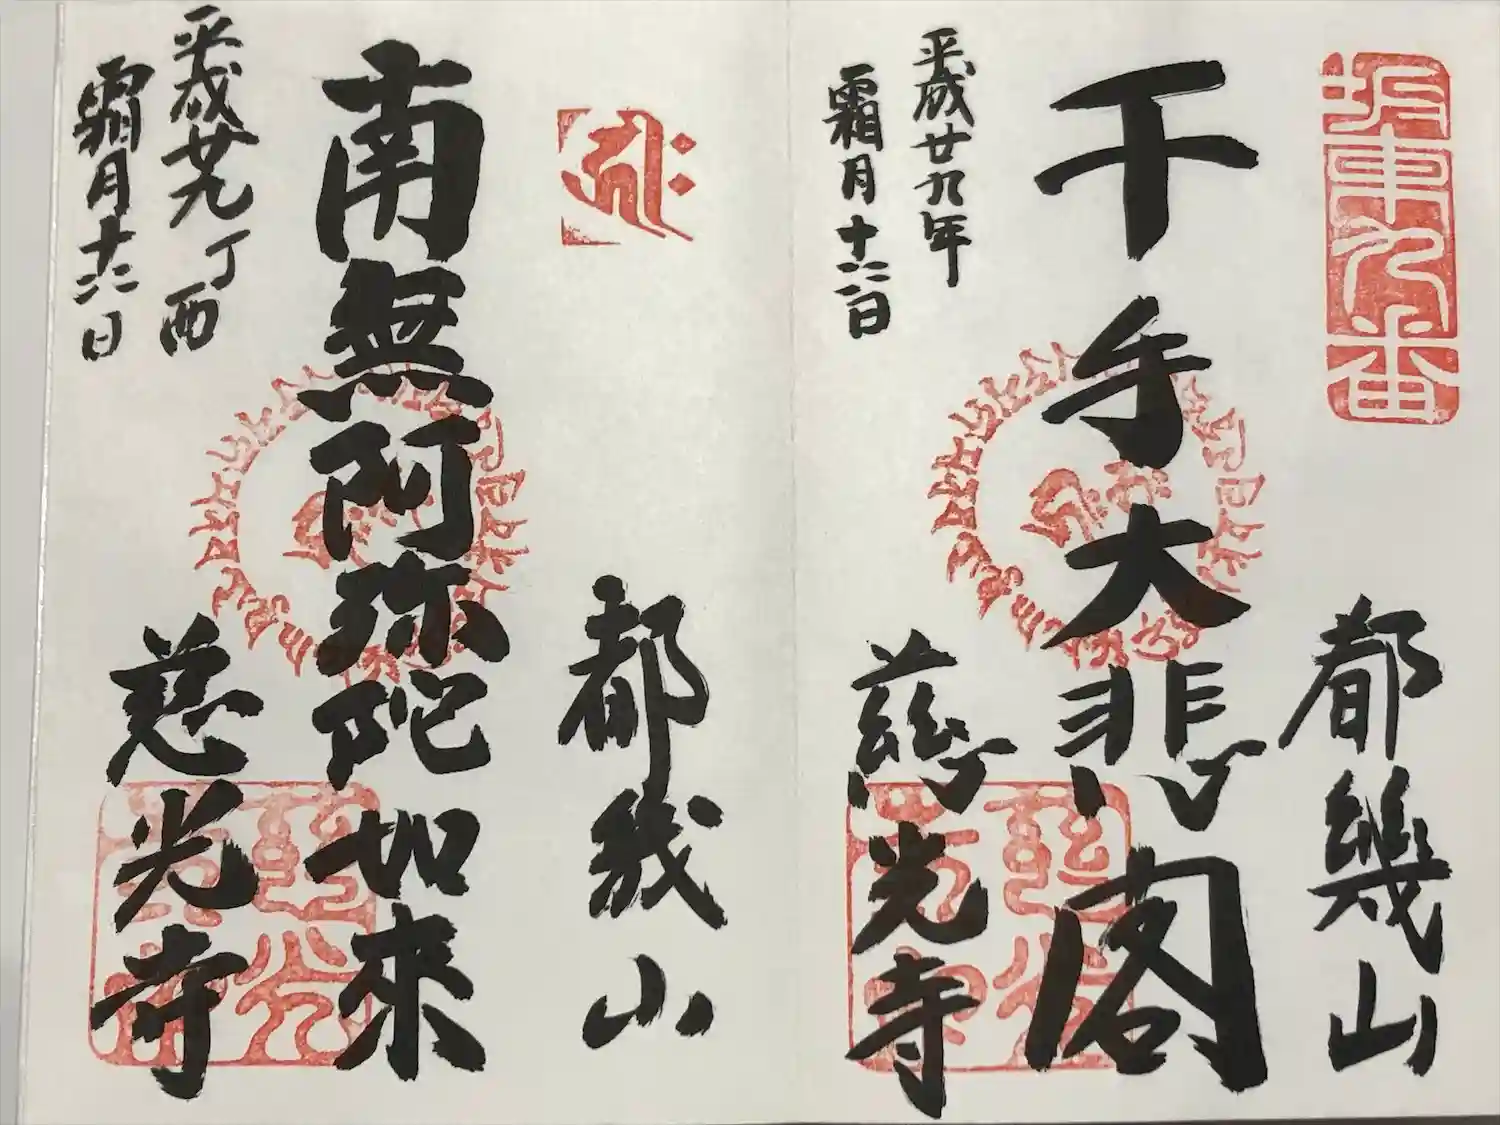 坂東九番
都幾山
千手大悲閣
平成廿九年
霜月十六日
慈光寺
都幾山
南無阿弥陀如来
平成廿九丁酉
霜月十六日
慈光寺